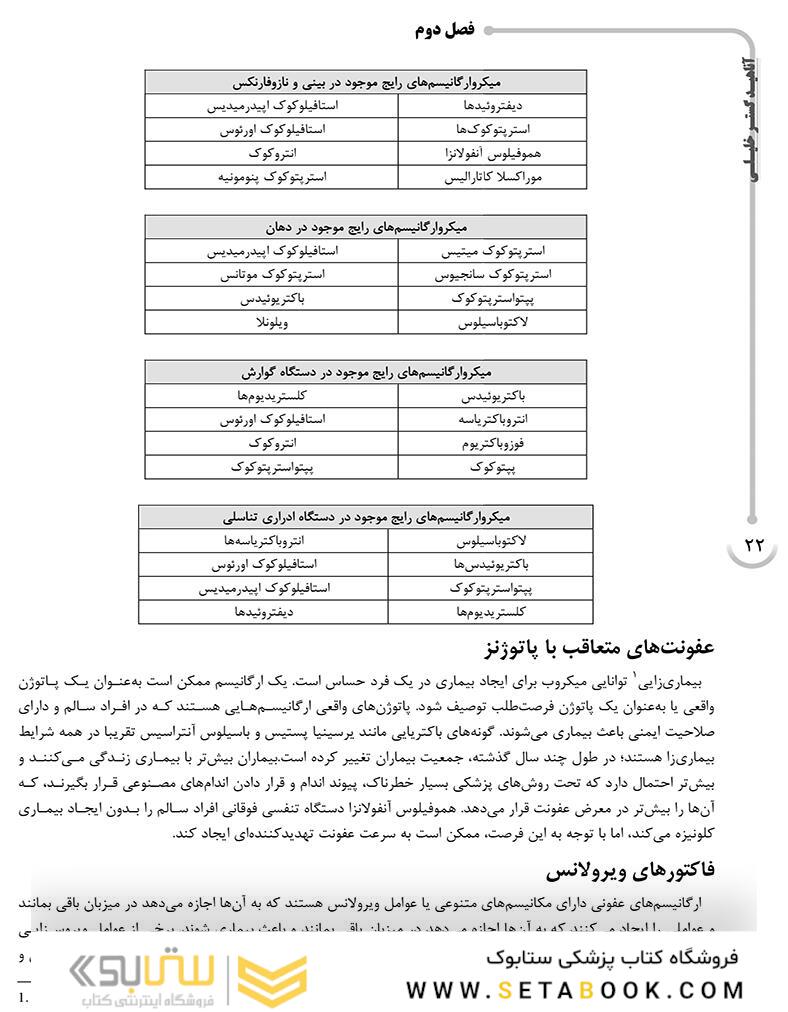 فصل دوم
آناهید گستر خلیلی
میکروارگانیسم‌های رایج موجود در بینی و نازوفارنکس
دیفتروئیدها استافیلوکوک اپیدرمیدیس
استرپتوکوک‌ها استافیلوکوک اورئوس
هموفیلوس آنفولانزا انتروکوک
موراکسلا کاتارالیس استرپتوکوک پنومونیه
میکروارگانیسم‌های رایج موجود در دهان
استرپتوکوک میتیس استافیلوکوک اپیدرمیدیس
استرپتوکوک سانجیوس استرپتوکوک موتانس
پپتواسترپتوکوک باکتریوئیدس
لاکتوباسیلوس ویلونلا
میکروارگانیسم‌های رایج موجود در دستگاه گوارش
باکتریوئیدس کلستریدیوم‌ها
انتروباکتریاسه استافیلوکوک اورئوس
فوزوباکتریوم انتروکوک
پپتوکوک پپتواسترپتوکوک
میکروارگانیسم‌های رایج موجود در دستگاه ادراری تناسلی
لاکتوباسیلوس انتروباکتریاسه‌ها
باکتریوئیدس‌ها استافیلوکوک اورئوس
پپتواسترپتوکوک استافیلوکوک اپیدرمیدیس
کلستریدیوم‌ها دیفتروئیدها
۲۲
عفونت‌های متعاقب با پاتوژنز
بیماری‌زایی۱ توانایی میکروب برای ایجاد بیماری در یک فرد حساس است. یک ارگانیسم ممکن است به‌عنوان یک پاتوژن
واقعی یا به‌عنوان یک پاتوژن فرصت‌طلب توصیف شود. پاتوژن‌های واقعی ارگانیسم‌هایی هستند که در افراد سالم و دارای
صلاحیت ایمنی باعث بیماری می‌شوند. گونه‌های باکتریایی مانند یرسینیا پستیس و باسیلوس آنتراسیس تقریبا در همه شرایط
بیماری‌زا هستند؛ در طول چند سال گذشته، جمعیت بیماران تغییر کرده است.بیماران بیش‌تر با بیماری زندگی می‌کنند و
بیش‌تر احتمال دارد که تحت روش‌های پزشکی بسیار خطرناک، پیوند اندام و قرار دادن اندام‌های مصنوعی قرار بگیرند، که
آن‌ها را بیش‌تر در معرض عفونت قرار می‌دهد. هموفیلوس آنفولانزا دستگاه تنفسی فوقانی افراد سالم را بدون ایجاد بیماری
کلونیزه می‌کند، اما با توجه به این فرصت، ممکن است به سرعت عفونت تهدیدکننده‌ای ایجاد کند.
فاکتورهای ویرولانس
ارگانیسم‌های عفونی دارای مکانیسم‌های متنوعی یا عوامل ویرولانس هستند که به آن‌ها اجازه می‌دهد در میزبان باقی بمانند
و عواملی را ایجاد می‌کنند که به آن‌ها اجازه می‌دهد در میزبان باقی بمانند و باعث بیماری شوند. برخی از عوامل ویروس‌زایی
و
1.
ستابوک
فروشگاه اینترنتی کتاب
فروشگاه کتاب پزشکی ستابوک
WWW.SETABOOK.COM